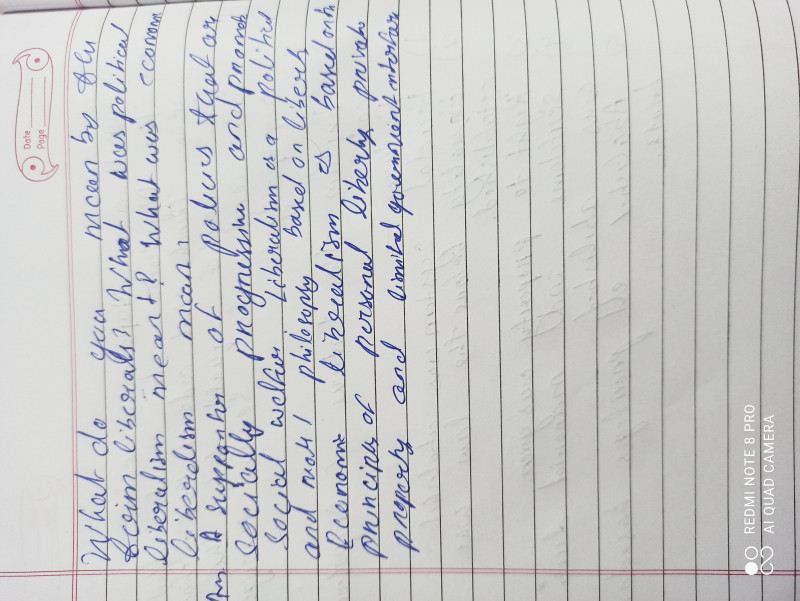 Date
Page
What do you mean by the
term liberals? What was political
liberalism meant? What was econom
liberalism mean?
Ans A supporter of policies that are
socially progressive and promote
social welfare Liberalism is a political
and moral philosophy based on liberty
Economic liberalism is based on the
principles of personal liberty private
property and limited government interfere
REDMI NOTE 8 PRO
AI QUAD CAMERA